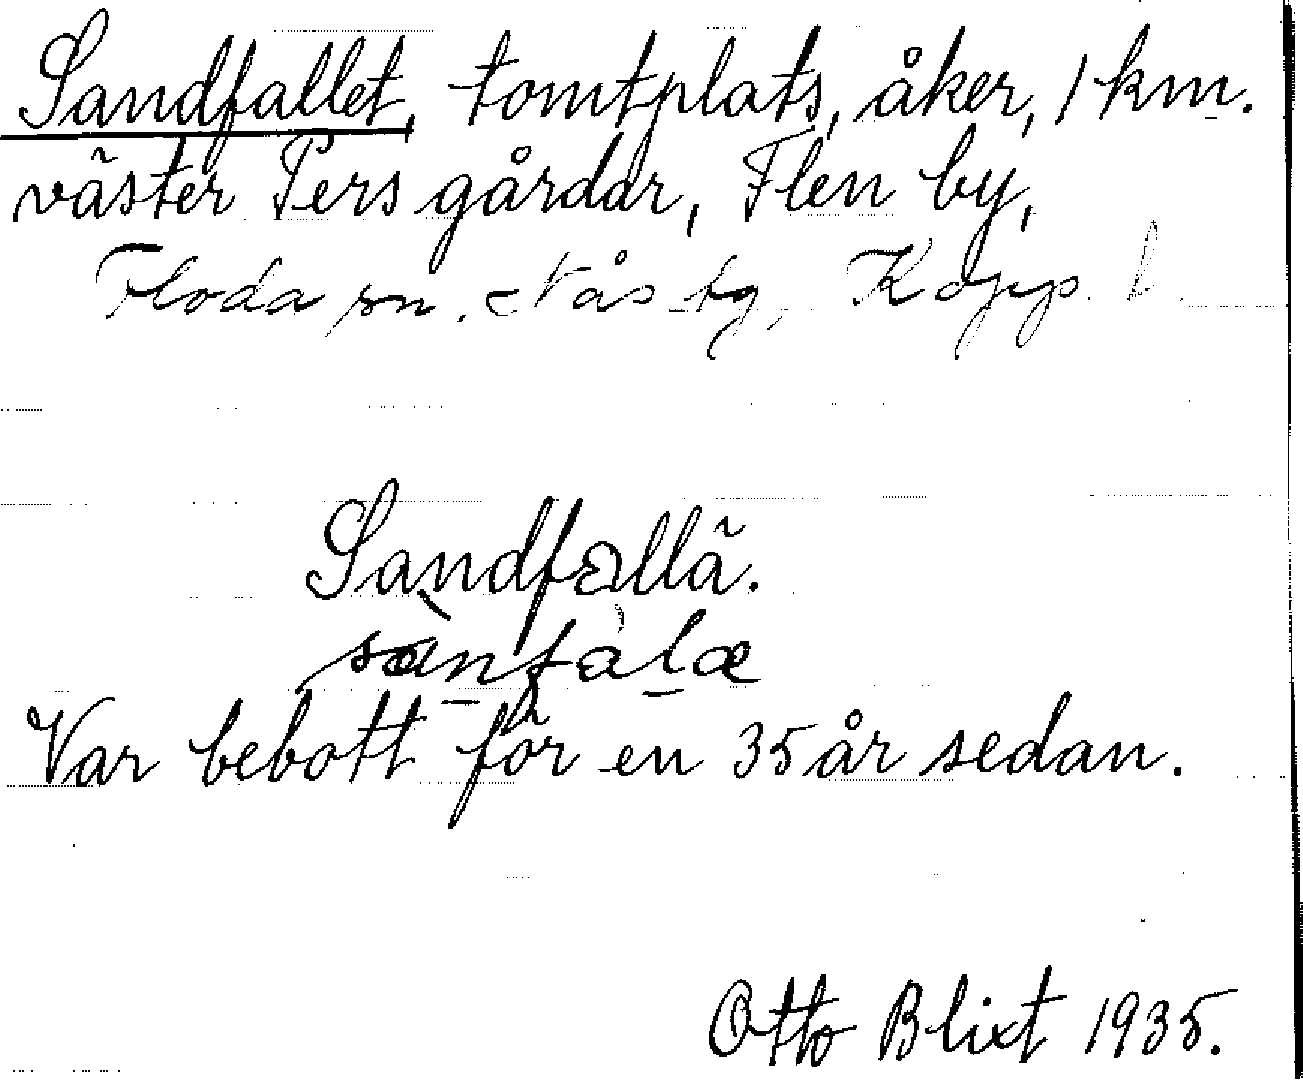 Sandfallet, tomtplats, åker, 1 km.
väster Pers gårdar, Flen by,
Floda sn. Nås tg, Kopp. l.
Sandfallä.
sànfàlæ
Var bebott för en 35 år sedan.
Otto Blixt 1935.